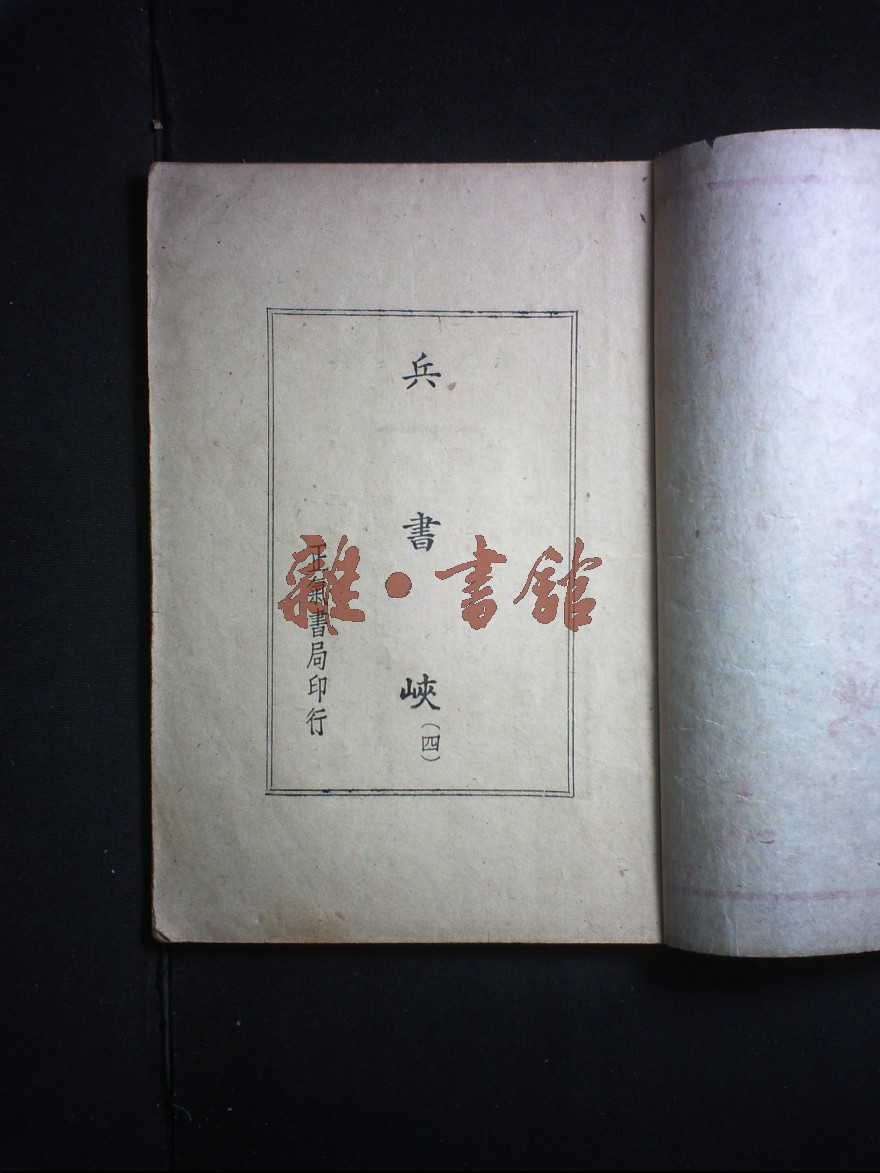 兵書峽
(四)
正氣書局印行
雜·書館